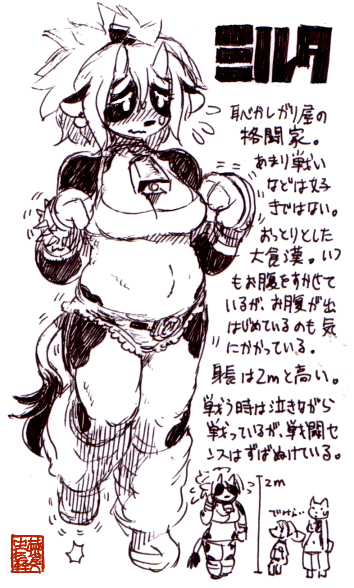 ミルタ
恥ずかしがり屋の
格闘家。
あまり戦い
などは好
きではない。
おっとりとした
大食漢。いつ
もお腹をすかせて
いるが、お腹が出
はじめているのも気
にかかっている。
身長は2mと高い。
戦う時は泣きながら
戦っているが、戦闘セ
ンスはずばぬけている。
2m
でけぇ…